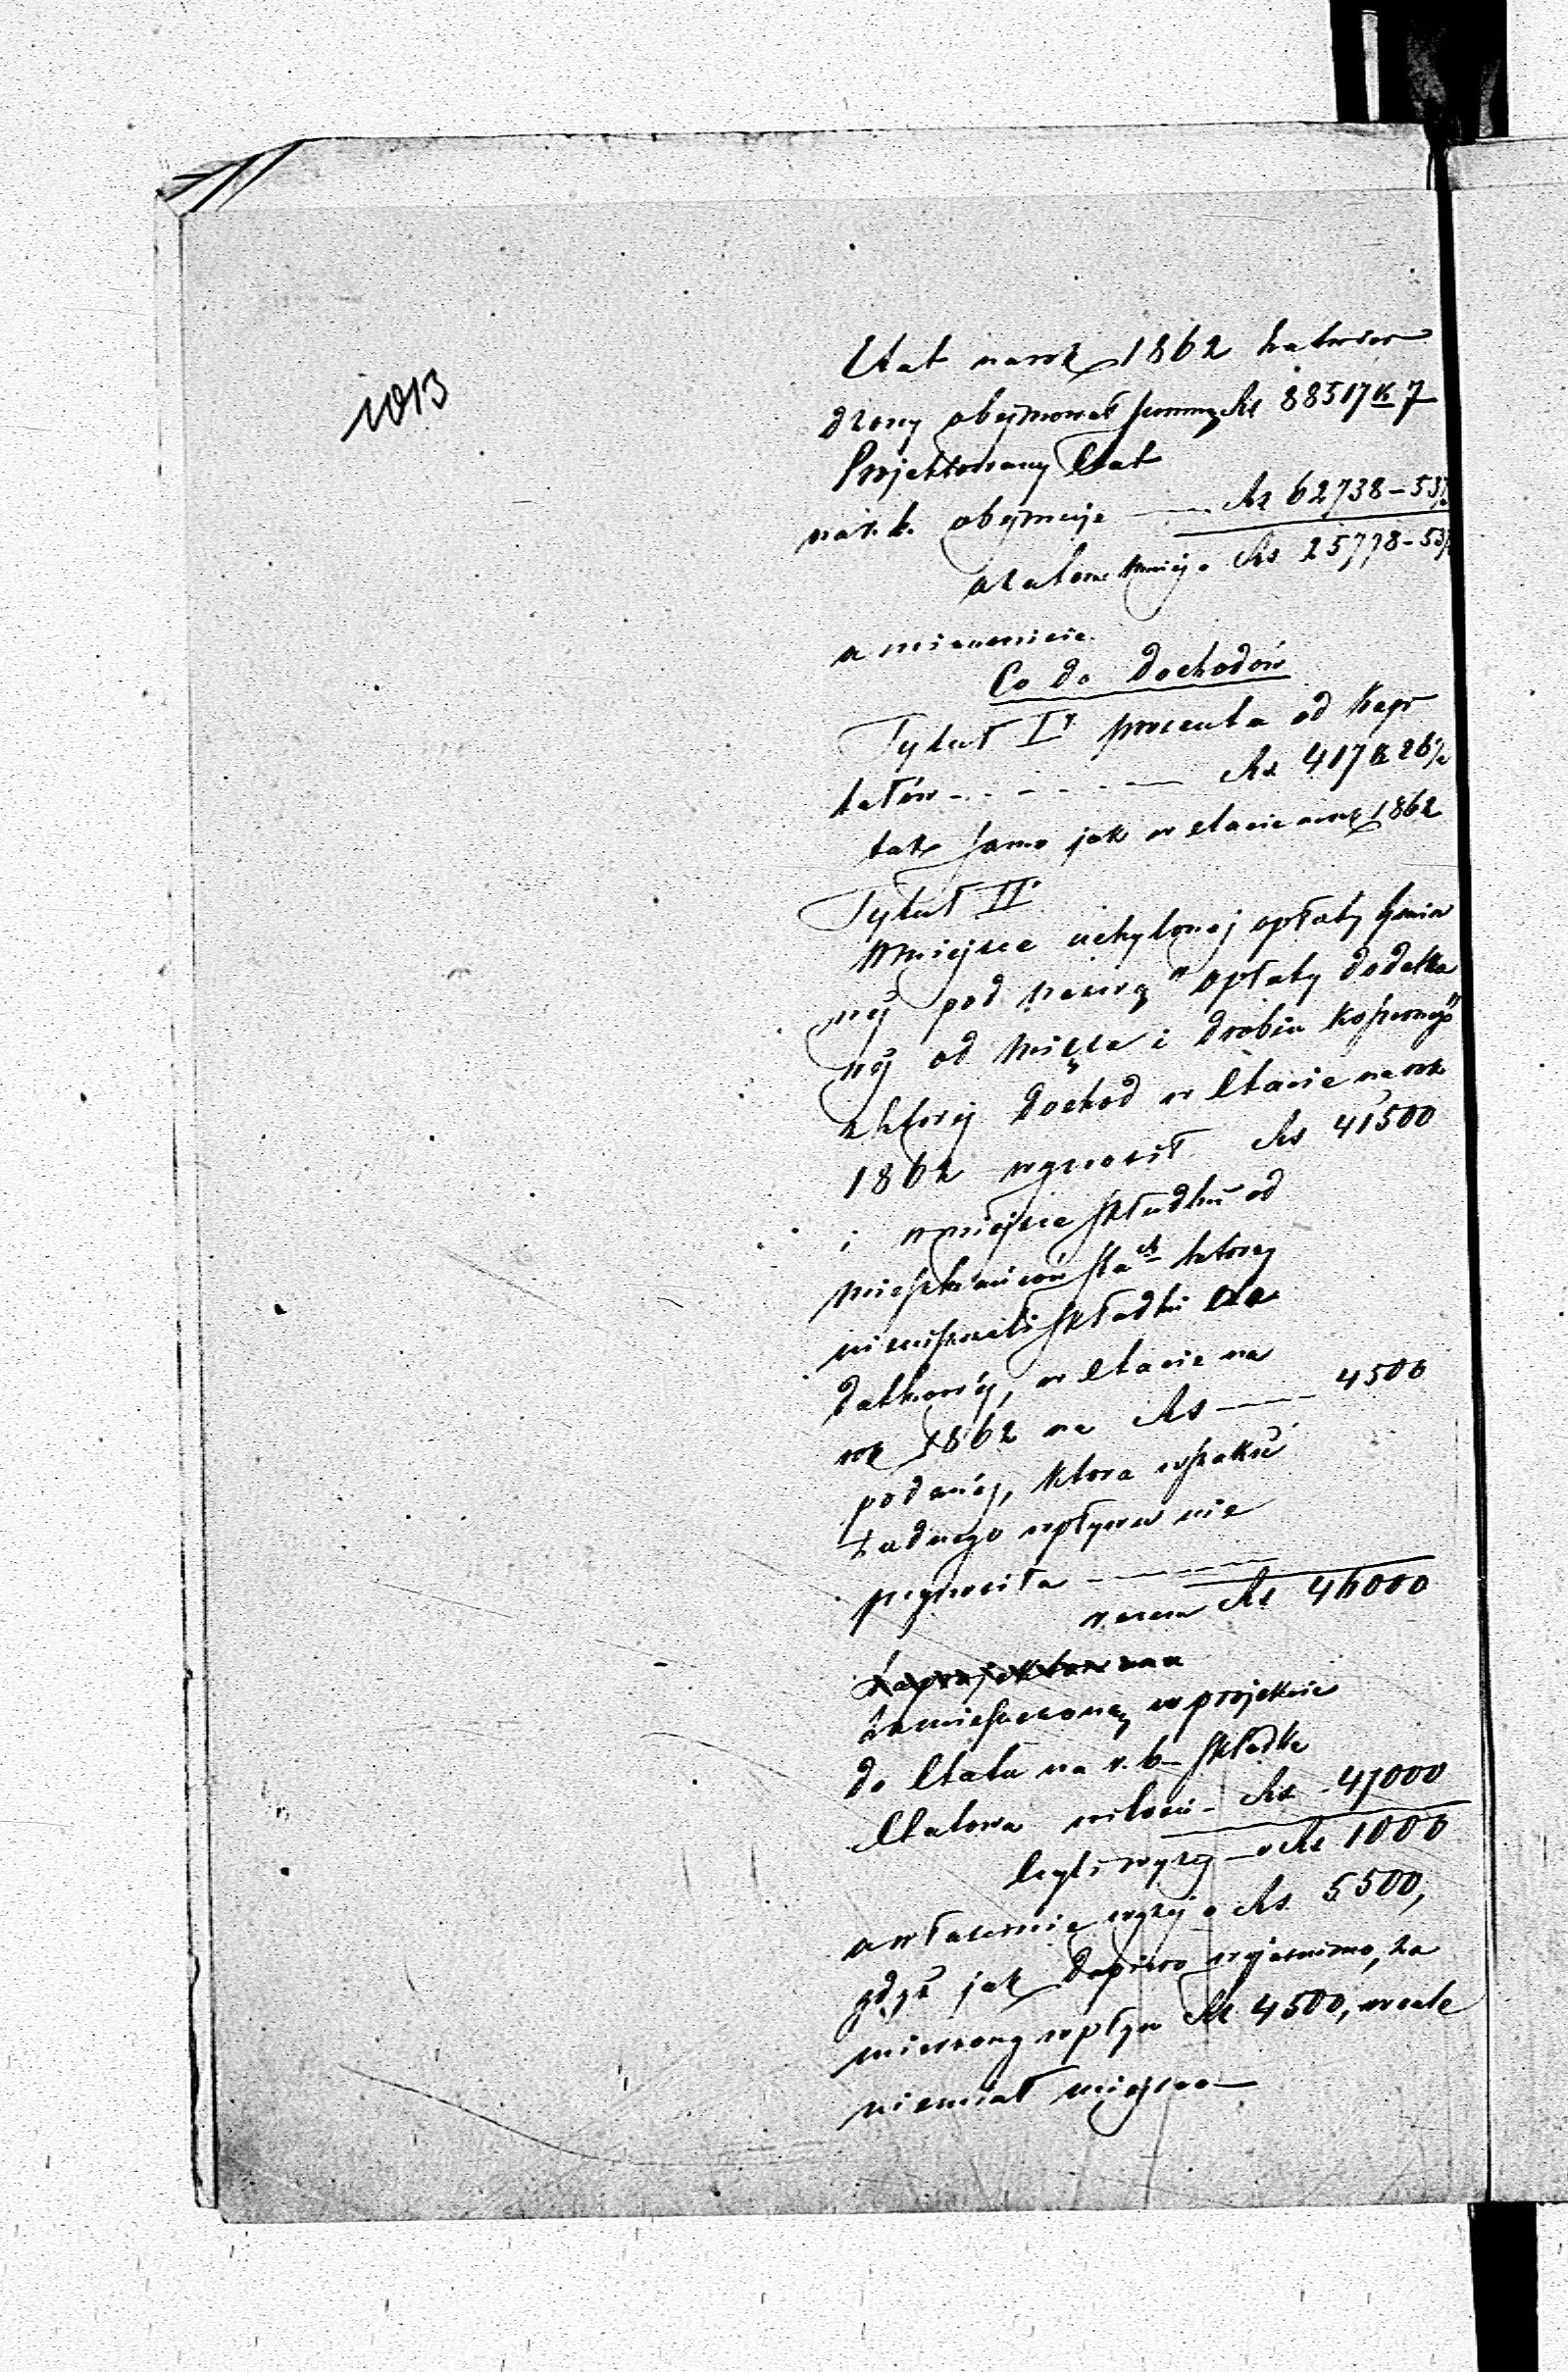 1013
Etat na rok 1862 zatwier
dzony obejmował summę Rs 88517 K 7
Projektowany Etat
na r. b. obejmuje — Rs 62738 – 53½
a zatem mniej o Rs 25778 – 53½
a mianowicie
Co do Dochodów
Tytuł I° procenta od kapi
tałów - - - - - Rs 417 K 26½
tak samo jak w etacie na rok 1862
Tytuł II°
W miejsce uchylonej opłaty gmin
nej pod nazwą "opłaty dodatko
wej od mięsa i drobiu koszernego"
z której dochód w Etacie na rok
1862 wynosił Rs 41500
i w miejsce składki od
mieszkańców sta ch którzy
nie uiszczali składki
datkowej, w etacie na
rok 1862 na Rs — 4500
podanej, która wszakże
żadnego wpływu nie
przyniosła — — —
razem Rs 46000
Zaprojektowana
zamieszczoną w projekcie
do Etatu na r. b. składka
Etatowa wilości - Rs - 47000
czyli wyżej — o Rs 1000
a właściwie wyżej o Rs 5500,
gdyż jak dopiero wyjaśniono, za
mierzony wpływ Rs 4500, wcale
niemiał miejsca —